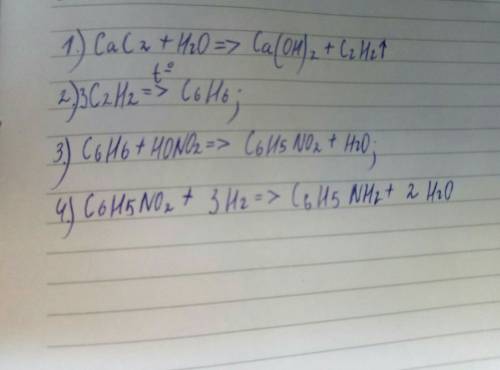 1.) CaC2 + H2O => Ca(OH)2 + C2H2↑
2.) 3C2H2 =t°> C6H6;
3.) C6H6 + HONO2 => C6H5NO2 + H2O;
4.) C6H5NO2 + 3H2 => C6H5NH2 + 2H2O